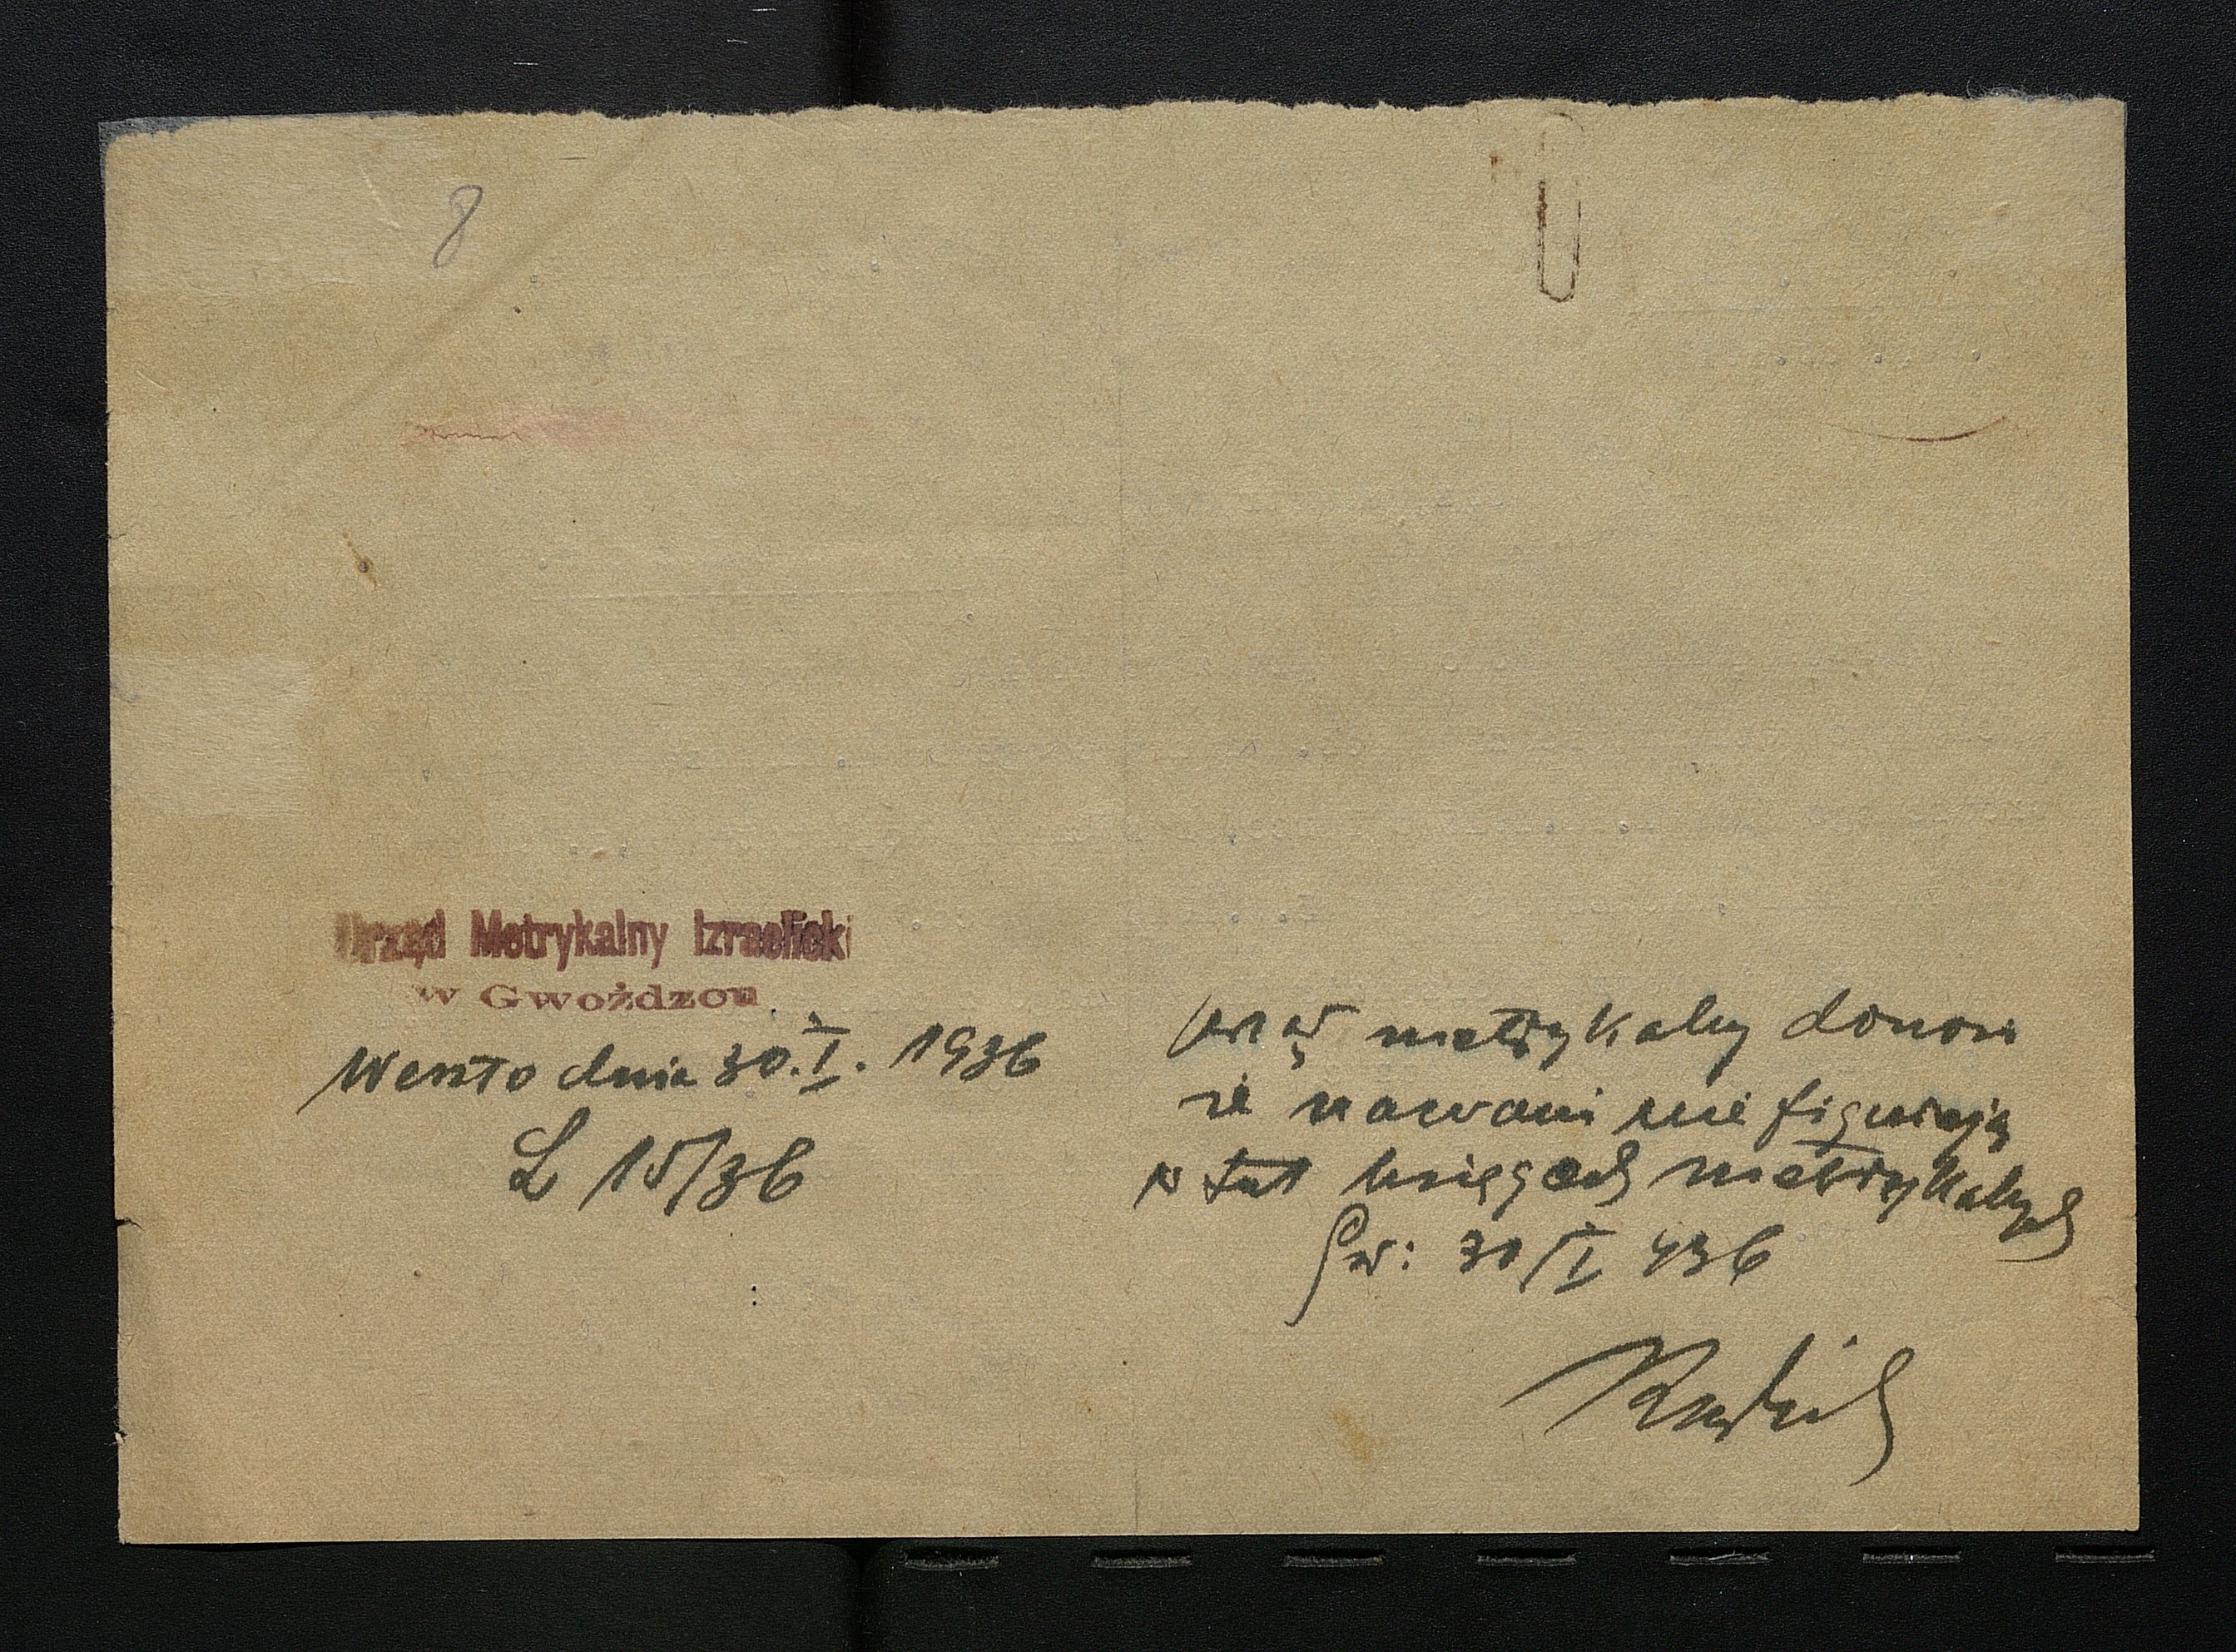 8
Urząd Metrykalny Izraelicki
w Gwoźdzcu
Weszło dnia 30.I. 1936
L 15/36
Urząd metrykalny donosi
że nazwani nie figurują
w tut księgach metrykalnych
Gw: 30/I 936